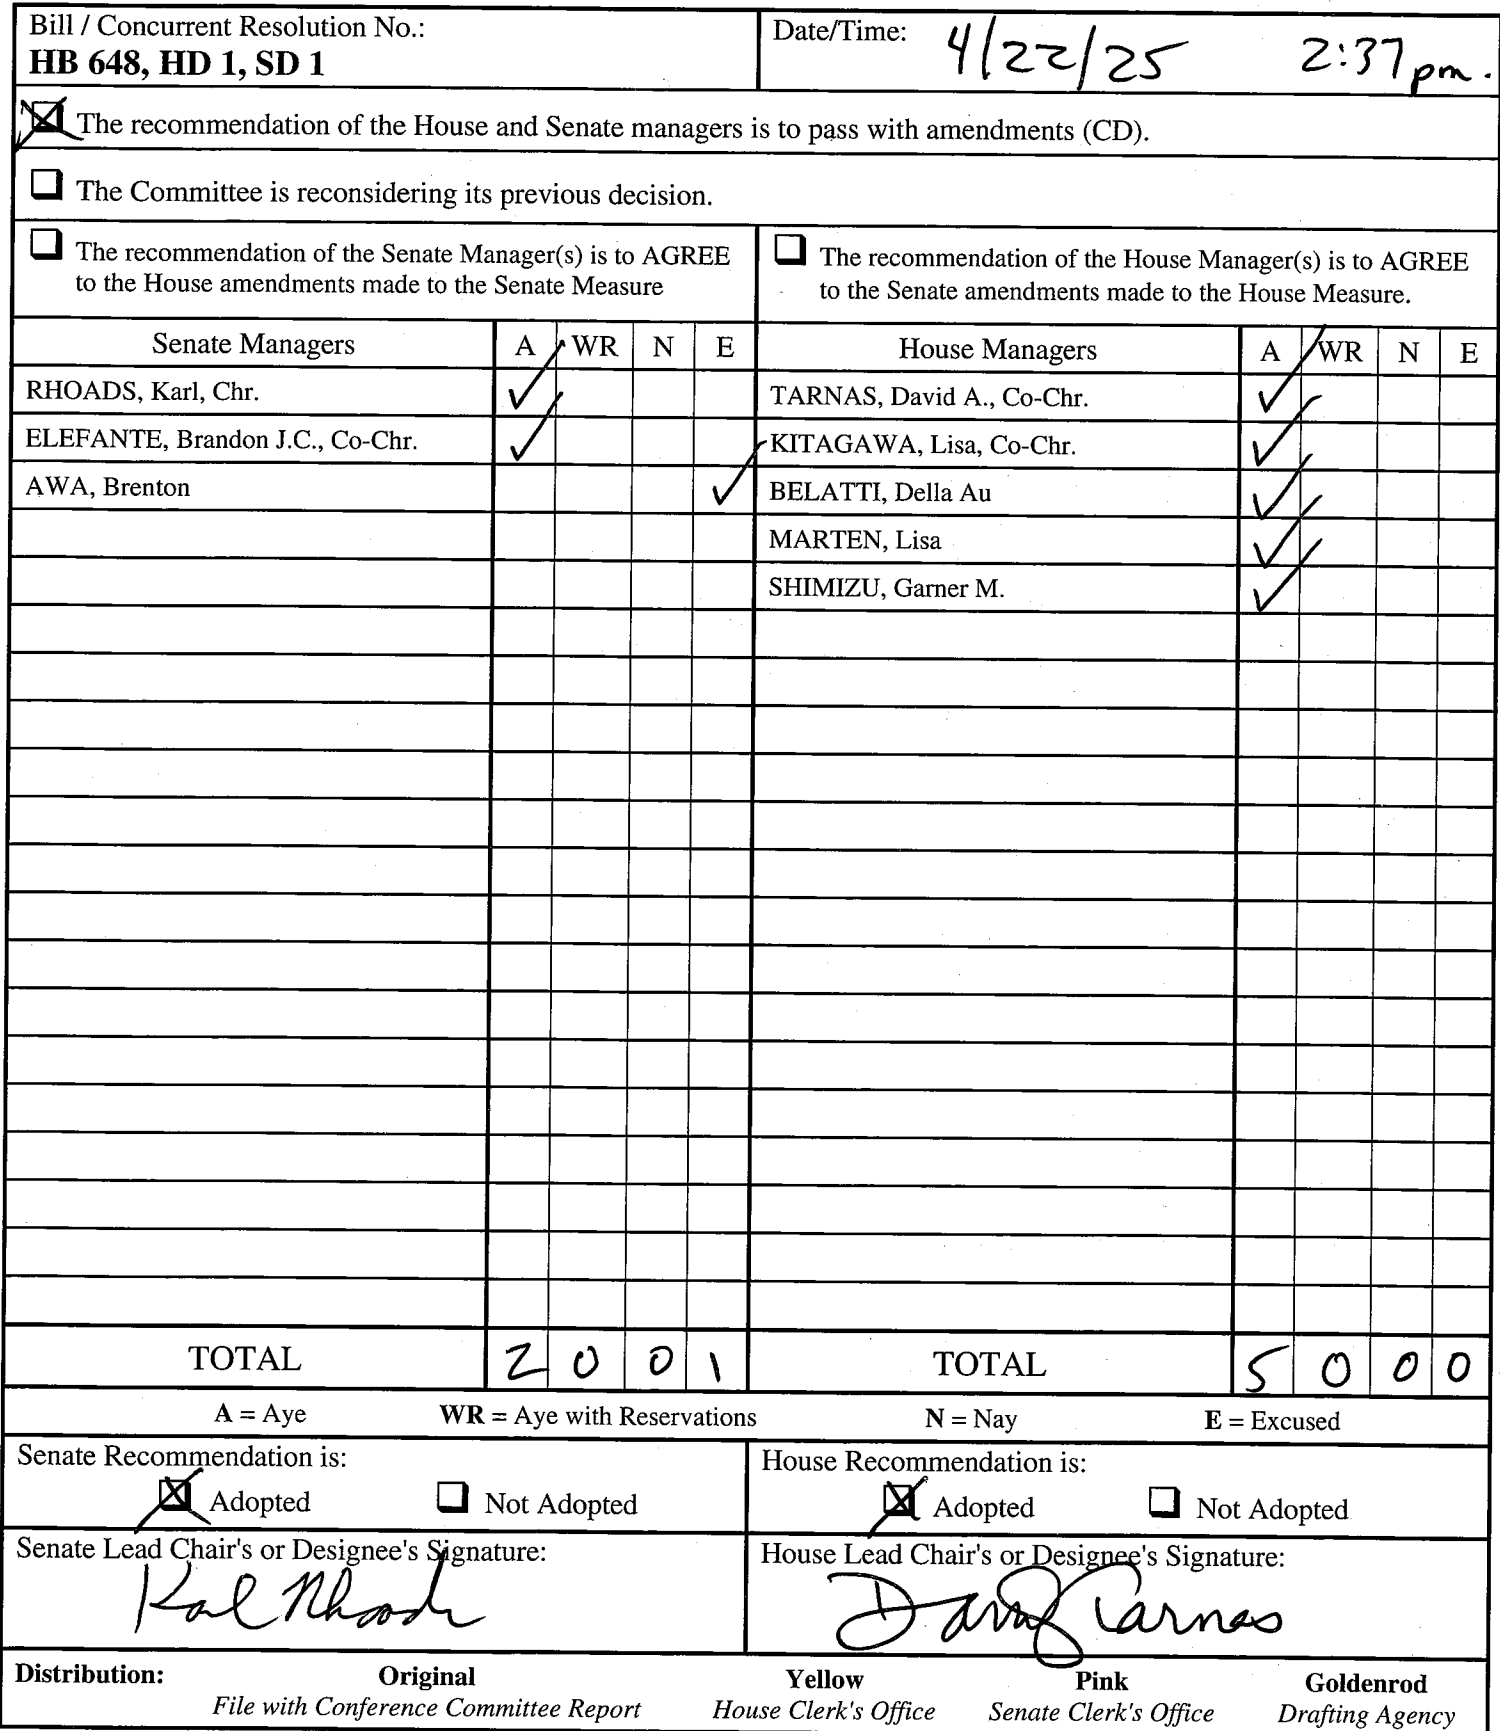 Bill / Concurrent Resolution No.:
HB 648, HD 1, SD 1
Date/Time: 4/22/25 2:37 pm.
The recommendation of the House and Senate managers is to pass with amendments (CD).
The Committee is reconsidering its previous decision.
The recommendation of the Senate Manager(s) is to AGREE
to the House amendments made to the Senate Measure
The recommendation of the House Manager(s) is to AGREE
to the Senate amendments made to the House Measure.
Senate Managers A WR N E House Managers A WR N E
RHOADS, Karl, Chr. ✓ TARNAS, David A., Co-Chr. ✓
ELEFANTE, Brandon J.C., Co-Chr. ✓ KITAGAWA, Lisa, Co-Chr. ✓
AWA, Brenton ✓ BELATTI, Della Au ✓
MARTEN, Lisa ✓
SHIMIZU, Garner M. ✓
TOTAL 2 0 0 1 TOTAL 5 0 0 0
A = Aye WR = Aye with Reservations N = Nay E = Excused
Senate Recommendation is:
Adopted Not Adopted
House Recommendation is:
Adopted Not Adopted
Senate Lead Chair's or Designee's Signature:
Karl Rhoads
House Lead Chair's or Designee's Signature:
David Tarnas
Distribution: Original Yellow Pink Goldenrod
File with Conference Committee Report House Clerk's Office Senate Clerk's Office Drafting Agency